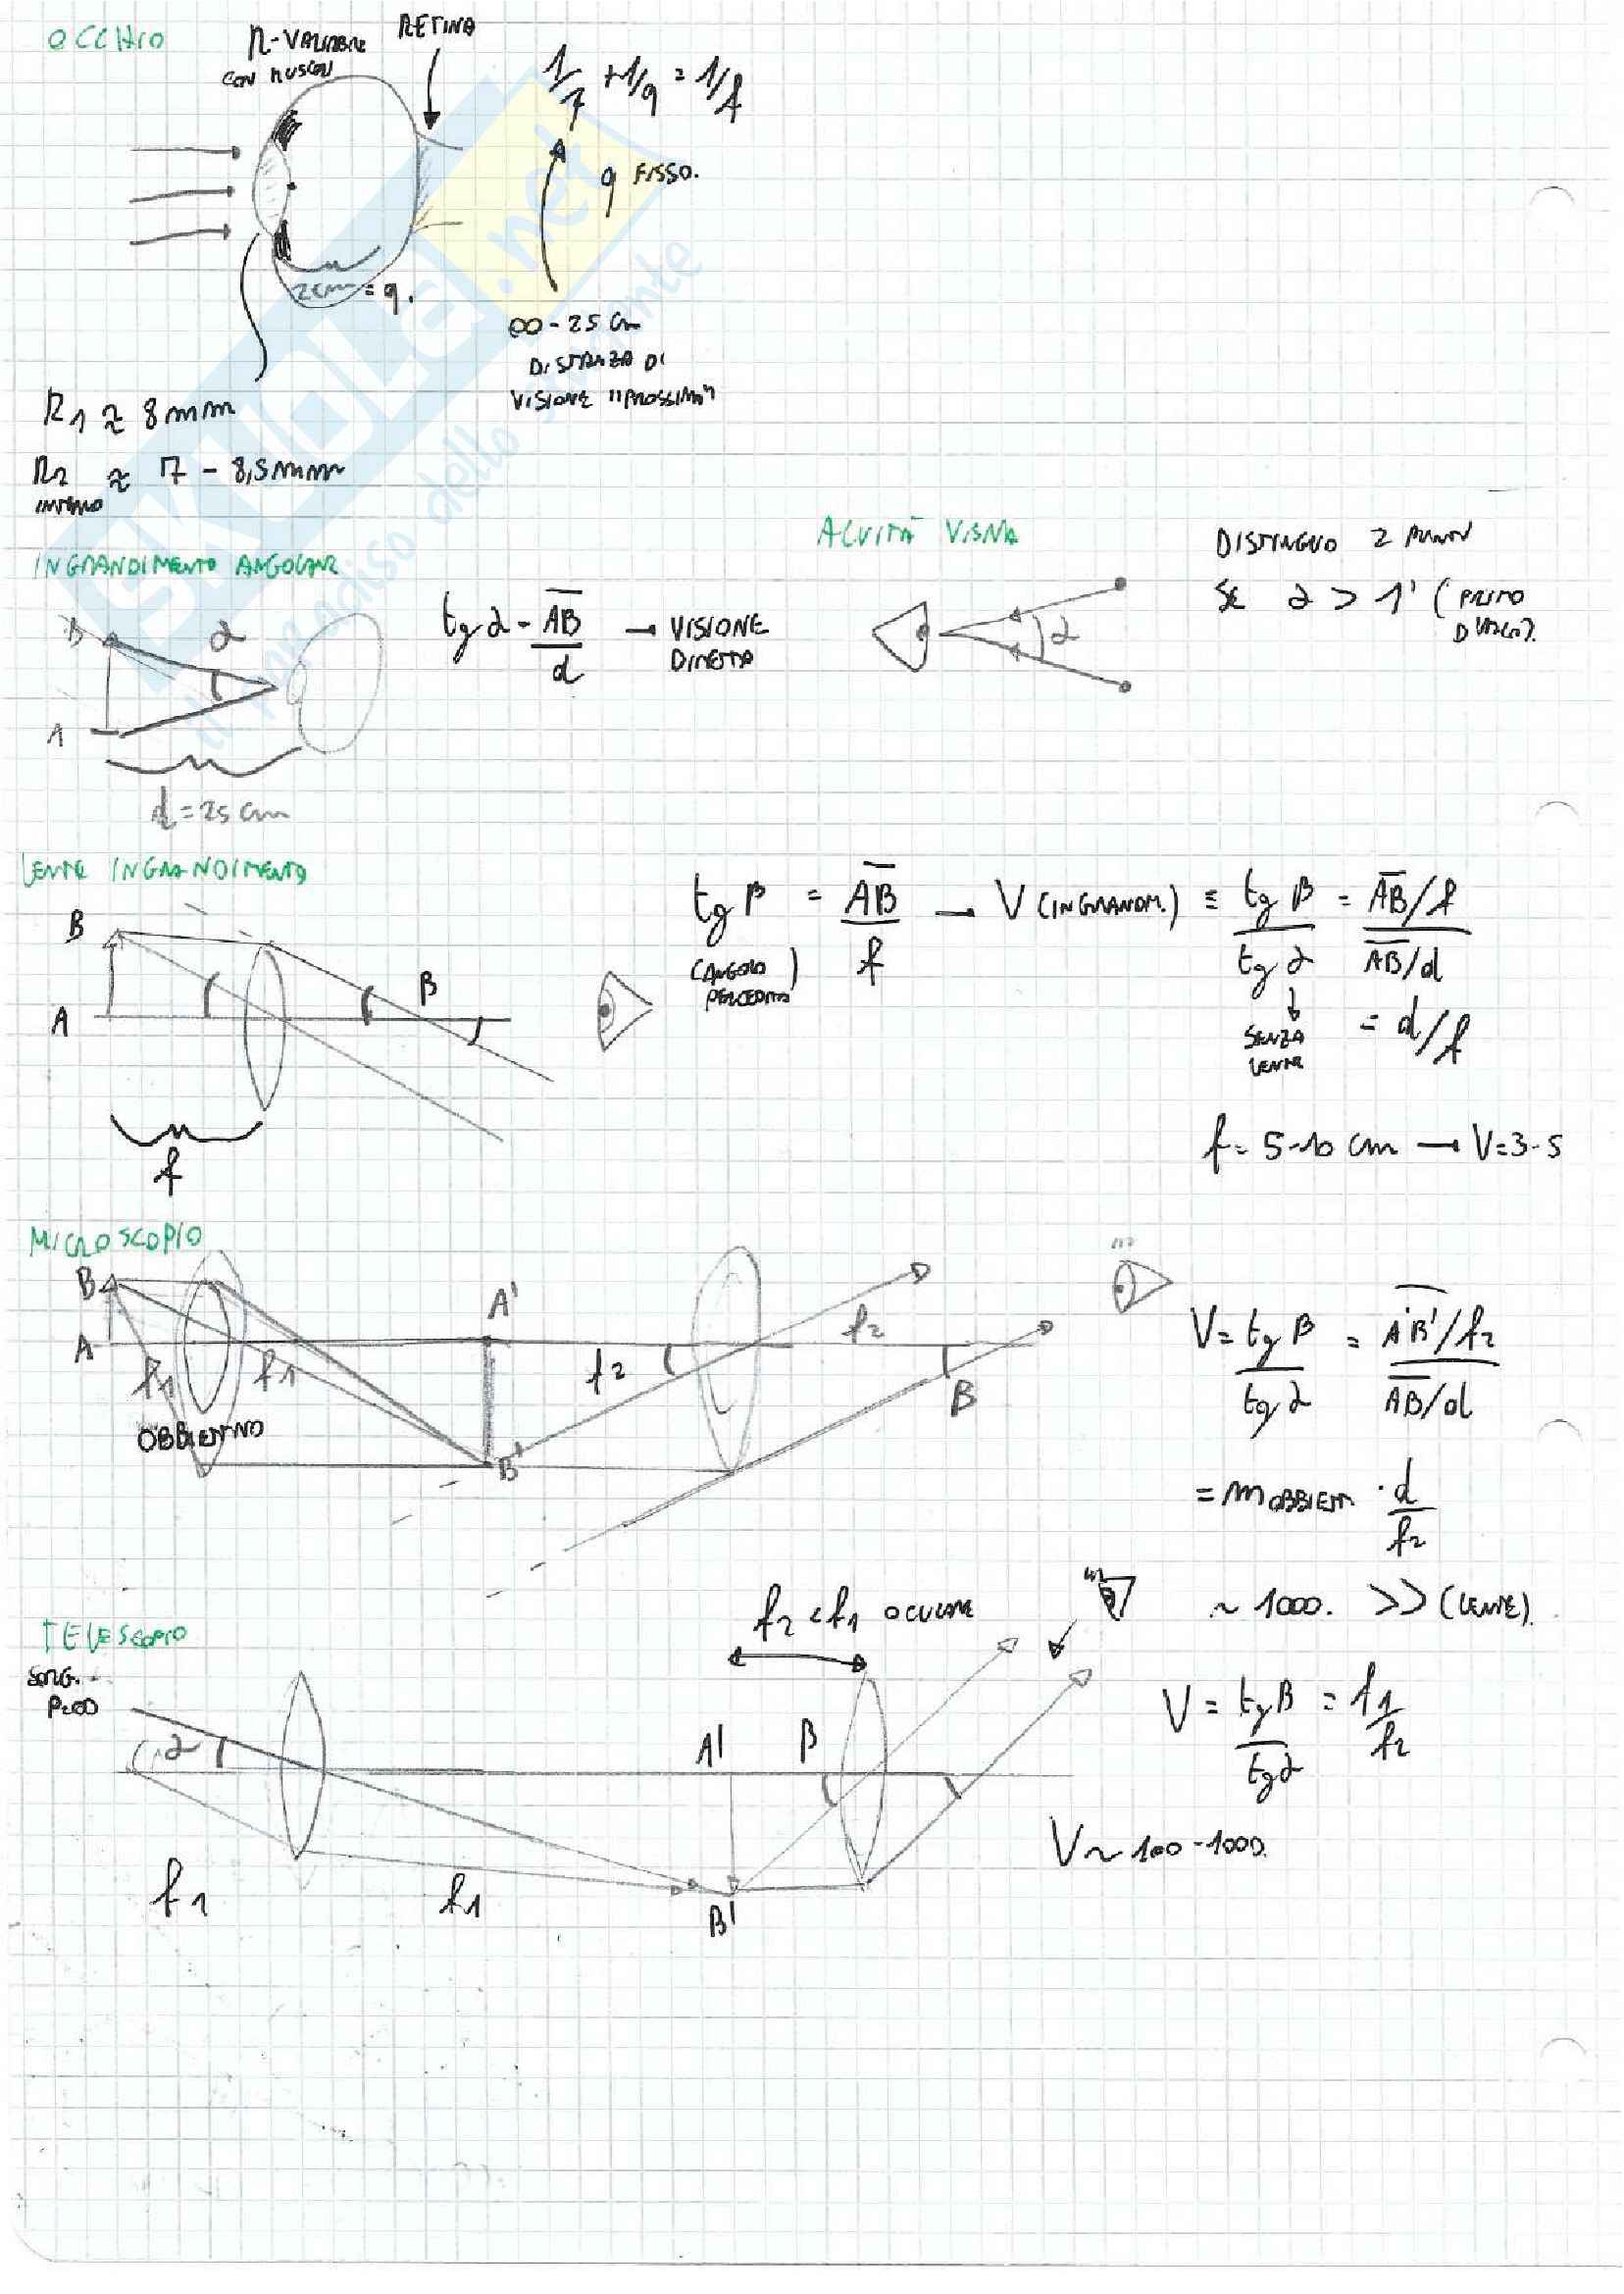 OCCHIO
R-VARIABILE
CON MUSCOLI
RETINA
1/p + 1/q = 1/f
q FISSO.
2cm = q.
∞ - 25 cm
DISTANZA DI
VISIONE "PROSSIMA"
R1 ≈ 8 mm
R2 ≈ 7 - 8,5 mm
INTERNO
SKUOLA.net
il paradiso dello studente
INGRANDIMENTO ANGOLARE
B
α
A
d = 25 cm
tg α = AB/d → VISIONE
DIRETTA
ACUITÀ VISIVA
α
DISTINGUO 2 PUNTI
SE α > 1' (PRIMO
D'ARCO).
LENTE INGRANDIMENTO
B
A
β
f
tg β = AB/f → V (INGRANDIM.) ≡ tg β/tg α = AB/f / AB/d
(ANGOLO
PERCEPITO)
SENZA
LENTE
= d/f
f = 5-10 cm → V = 3-5
MICROSCOPIO
B
A
f1
f1
OBBIETTIVO
A'
B'
f2
f2
β
V = tg β/tg α = A'B'/f2 / AB/d
= m OBBIETT. · d/f2
~ 1000. >> (LENTE).
TELESCOPIO
SORG.
P=∞
α
f1
f1
f2 < f1 OCULARE
A'
β
B'
V = tg β/tg α = f1/f2
V ~ 100-1000.